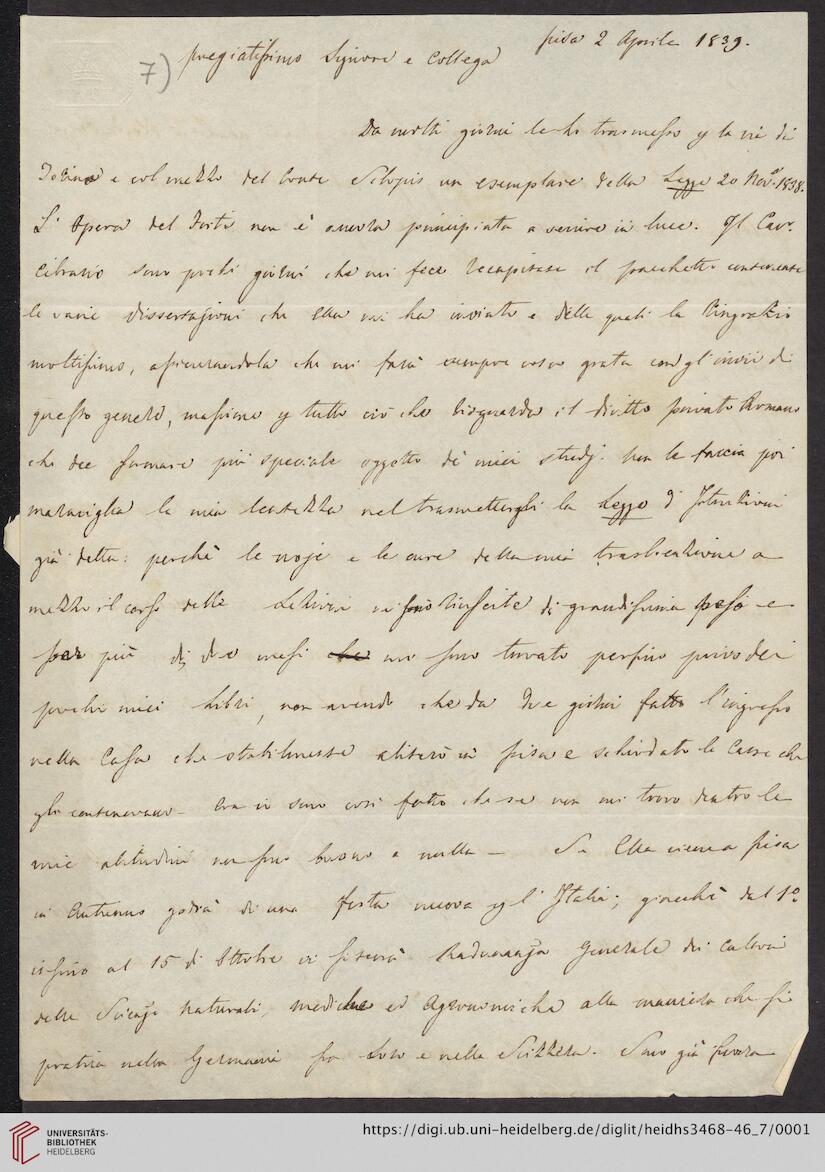 7)
pregiatissimo Signore e Collega
pisa 2 Aprile 1839.
Da molti giorni le ho trasmesso p la via di
Torino e col mezzo del Conte Sclopis un esemplare della Legge 20 Nov. 1838.
L'opera del Forti non è ancora principiata a venire in luce. Il Cav.
Cibrario sono pochi giorni che mi fece recapitare il pacchetto contenente
le varie dissertazioni che Ella mi ha inviato e delle quali la ringrazio
moltissimo, assicurandola che mi sarà sempre cosa grata con gl'invii di
questo genere, massime p tutto ciò che risguarda il diritto privato Romano
che dee formare più speciale oggetto de miei studj. Non le faccia poi
maraviglia la mia lentezza nel trasmettergli la Legge d'Istruzioni
già detta: perchè le noje e le cure della mia traslocazione a
mezzo il corso delle Lezioni mi sono riuscite di grandissimo peso e
per più di due mesi che mi sono trovato persino privo dei
pochi miei Libri, non avendo che da due giorni fatto l'ingresso
nella Casa che stabilmente abiterò in pisa e schiodato le Casse che
gli contenevano - Ora io sono così fatto che se non mi trovo dentro le
mie abitudini non sono buono a nulla - Se Ella viene a pisa
in Autunno godrà di una festa nuova p l'Italia; giacchè dal 1º
insino al 15 di Ottobre vi si terrà Radunanza Generale dei Cultori
delle Scienze Naturali, mediche ed Agronomiche alla maniera che si
pratica nella Germania fra Loro e nella Svizzera. Sono già
UNIVERSITÄTS-
BIBLIOTHEK
HEIDELBERG
https://digi.ub.uni-heidelberg.de/diglit/heidhs3468-46_7/0001